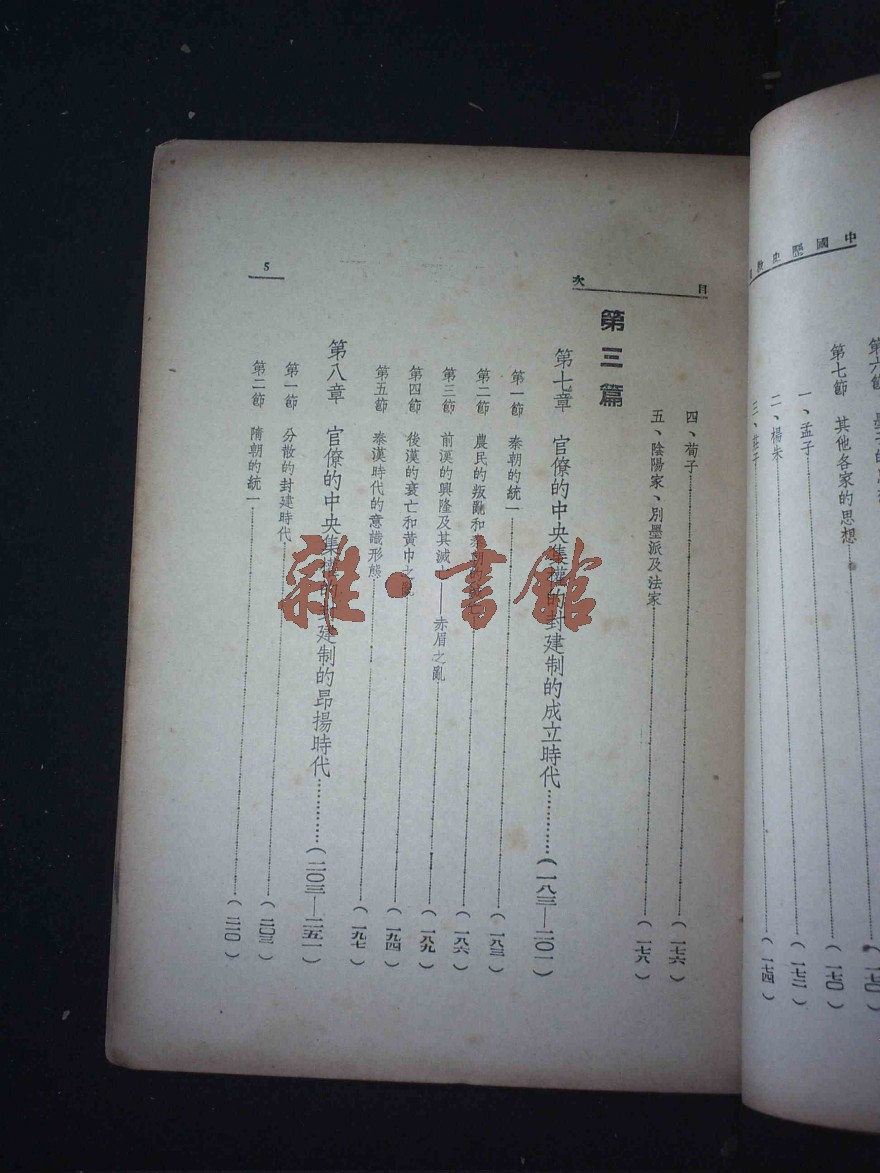 中國歷史教
第七節 其他各家的思想
一、孟子 (一七二)
二、楊朱
三、莊子 (一七四)
(一七〇)
目次
四、荀子 (一七六)
五、陰陽家、別墨派及法家 (一七八)
第三篇
第七章 官僚的中央集權的封建制的成立時代 (一八三—二〇一)
第一節 秦朝的統一 (一八三)
第二節 農民的叛亂和 (一八六)
第三節 前漢的興隆及其滅亡——赤眉之亂 (一八九)
第四節 後漢的衰亡和黃巾之亂 (一九四)
第五節 秦漢時代的意識形態 (一九七)
第八章 官僚的中央集權的封建制的昂揚時代 (二〇三—二五一)
第一節 分散的封建時代 (二〇三)
第二節 隋朝的統一 (二一〇)
5
雜·書館